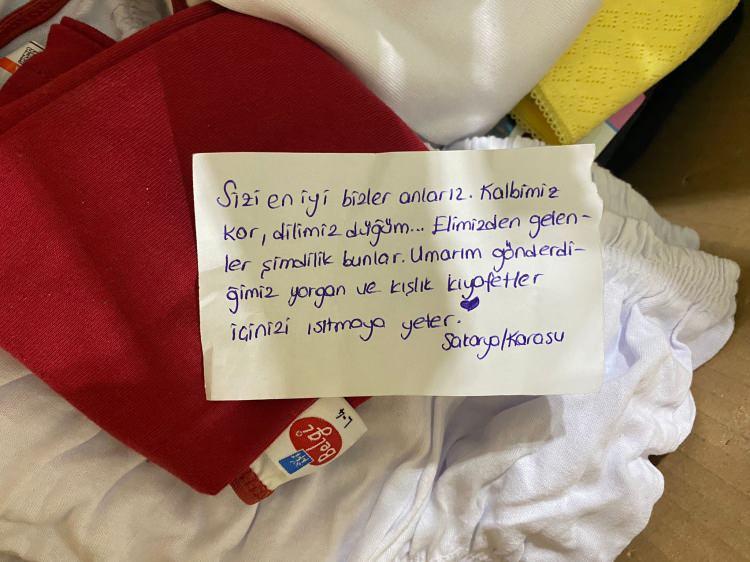 Sizi en iyi bizler anlarız. Kalbimiz
kor, dilimiz düğüm... Elimizden gelen-
ler şimdilik bunlar. Umarım gönderdi-
ğimiz yorgan ve kışlık kıyafetler
içinizi ısıtmaya yeter.
Sakarya/Karasu
Belgi
L-4